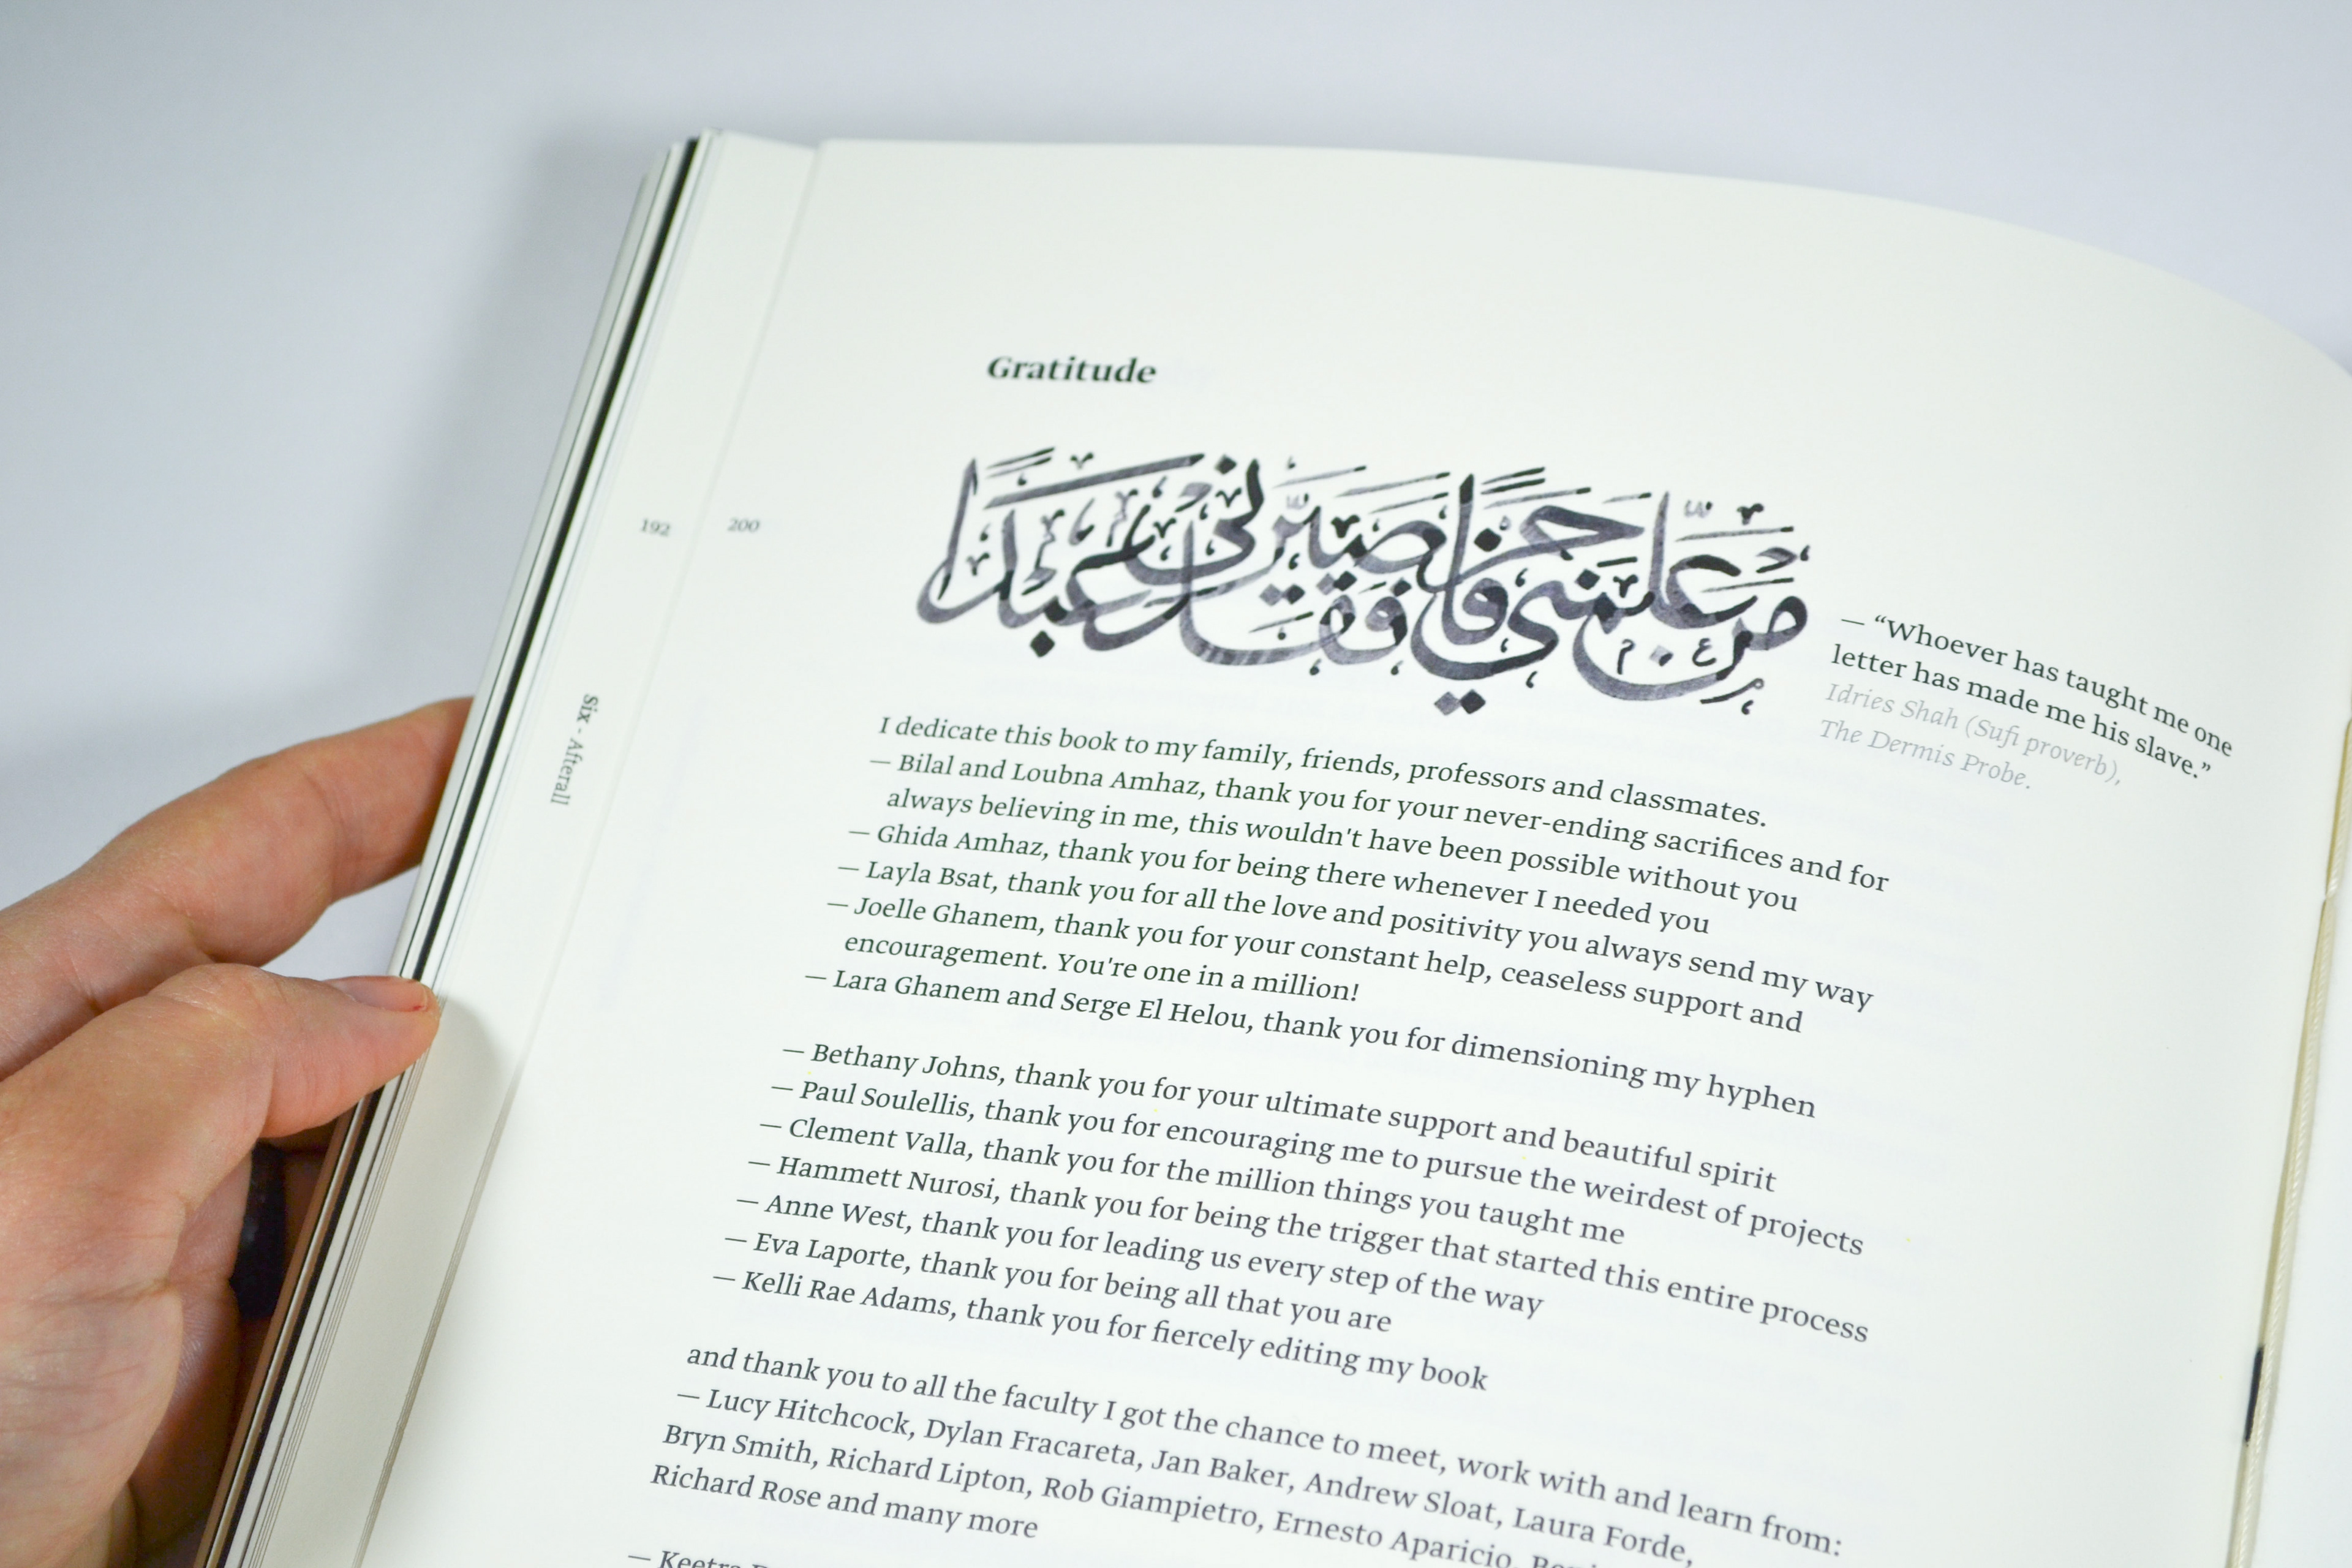 192
200
Six - Afterall
Gratitude
من علمني حرفاً فقد صيرني له عبداً
— “Whoever has taught me one
letter has made me his slave.”
Idries Shah (Sufi proverb),
The Dermis Probe.
I dedicate this book to my family, friends, professors and classmates.
— Bilal and Loubna Amhaz, thank you for your never-ending sacrifices and for
always believing in me, this wouldn't have been possible without you
— Ghida Amhaz, thank you for being there whenever I needed you
— Layla Bsat, thank you for all the love and positivity you always send my way
— Joelle Ghanem, thank you for your constant help, ceaseless support and
encouragement. You're one in a million!
— Lara Ghanem and Serge El Helou, thank you for dimensioning my hyphen
— Bethany Johns, thank you for your ultimate support and beautiful spirit
— Paul Soulellis, thank you for encouraging me to pursue the weirdest of projects
— Clement Valla, thank you for the million things you taught me
— Hammett Nurosi, thank you for being the trigger that started this entire process
— Anne West, thank you for leading us every step of the way
— Eva Laporte, thank you for being all that you are
— Kelli Rae Adams, thank you for fiercely editing my book
and thank you to all the faculty I got the chance to meet, work with and learn from:
— Lucy Hitchcock, Dylan Fracareta, Jan Baker, Andrew Sloat, Laura Forde,
Bryn Smith, Richard Lipton, Rob Giampietro, Ernesto Aparicio,
Richard Rose and many more